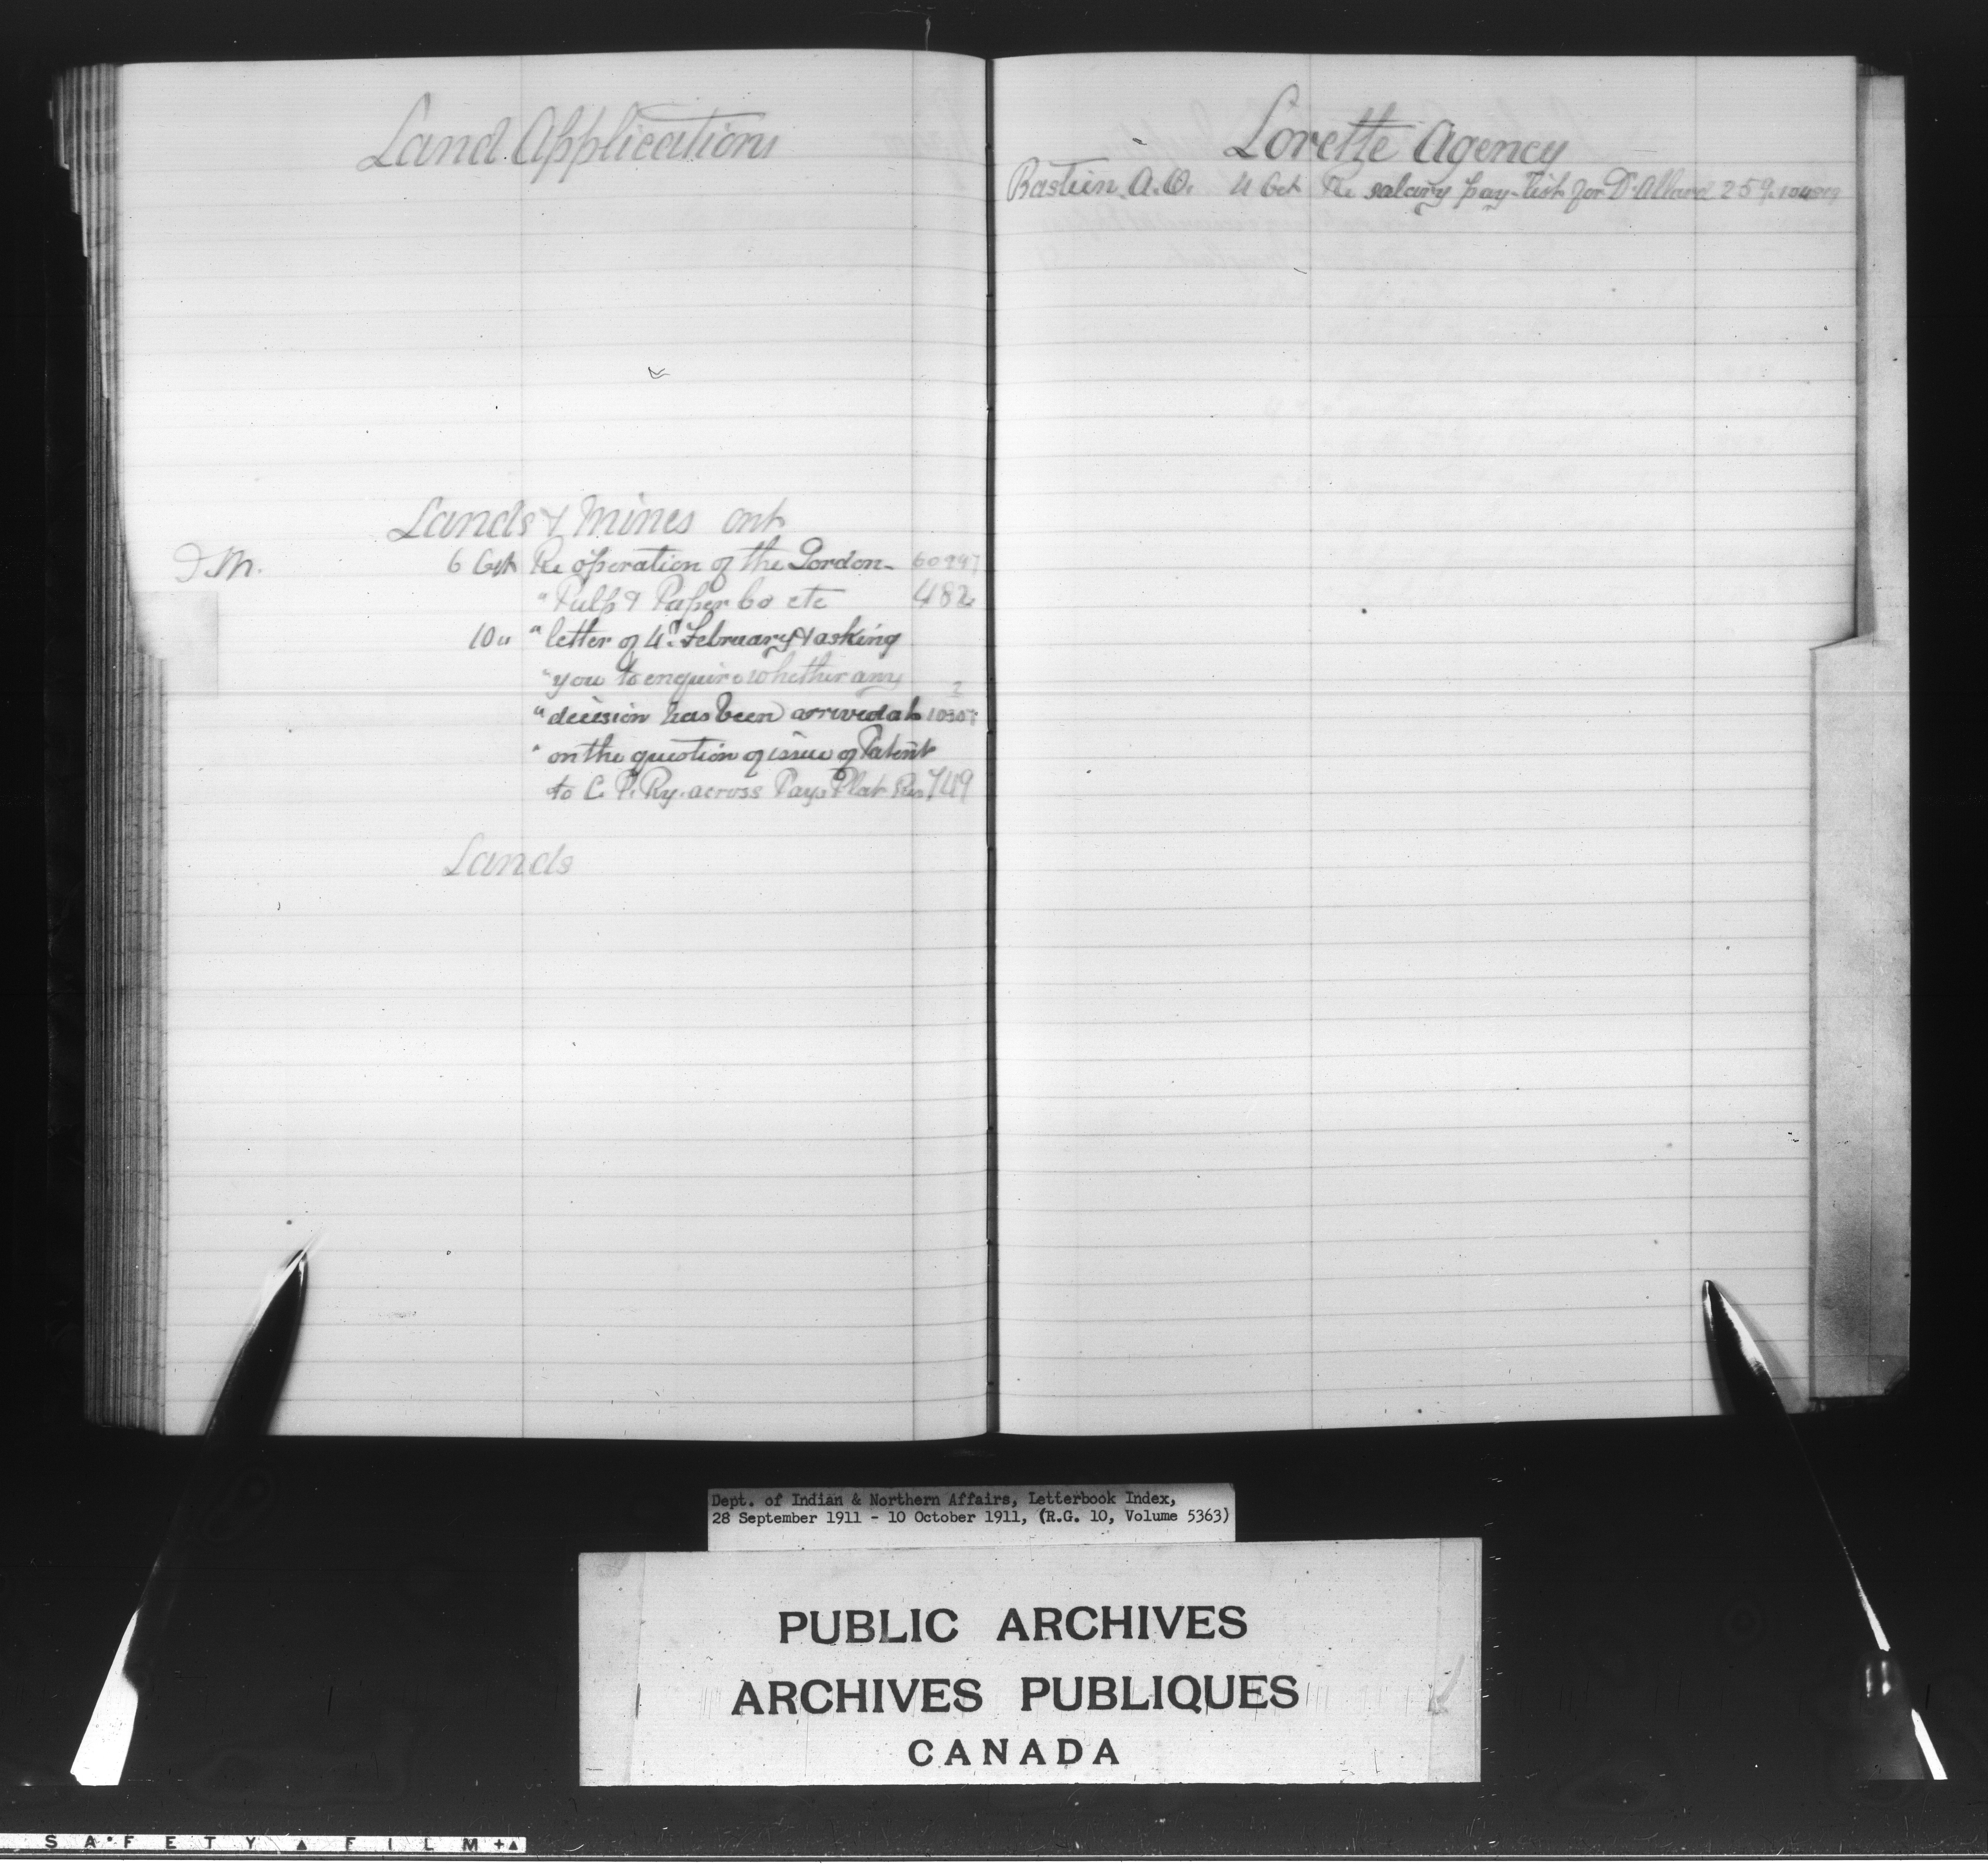 Land Applications
Lands & Mines Ont
D.M. 6 Oct Re operation of the Gordon-
" Pulp & Paper Co etc 482
10 " " letter of 4th February & asking
" you to enquire whether any 2
" decision has been arrived at
" on the question of issue of Patent
to C. P. Ry. across Pays Plat Res 749
Lands
Lorette Agency
Bastien. A.O. 4 Oct Re salary pay-list for Dr. Allard 259
Dept. of Indian & Northern Affairs, Letterbook Index,
28 September 1911 - 10 October 1911, (R.G. 10, Volume 5363)
PUBLIC ARCHIVES
ARCHIVES PUBLIQUES
CANADA
SAFETY FILM